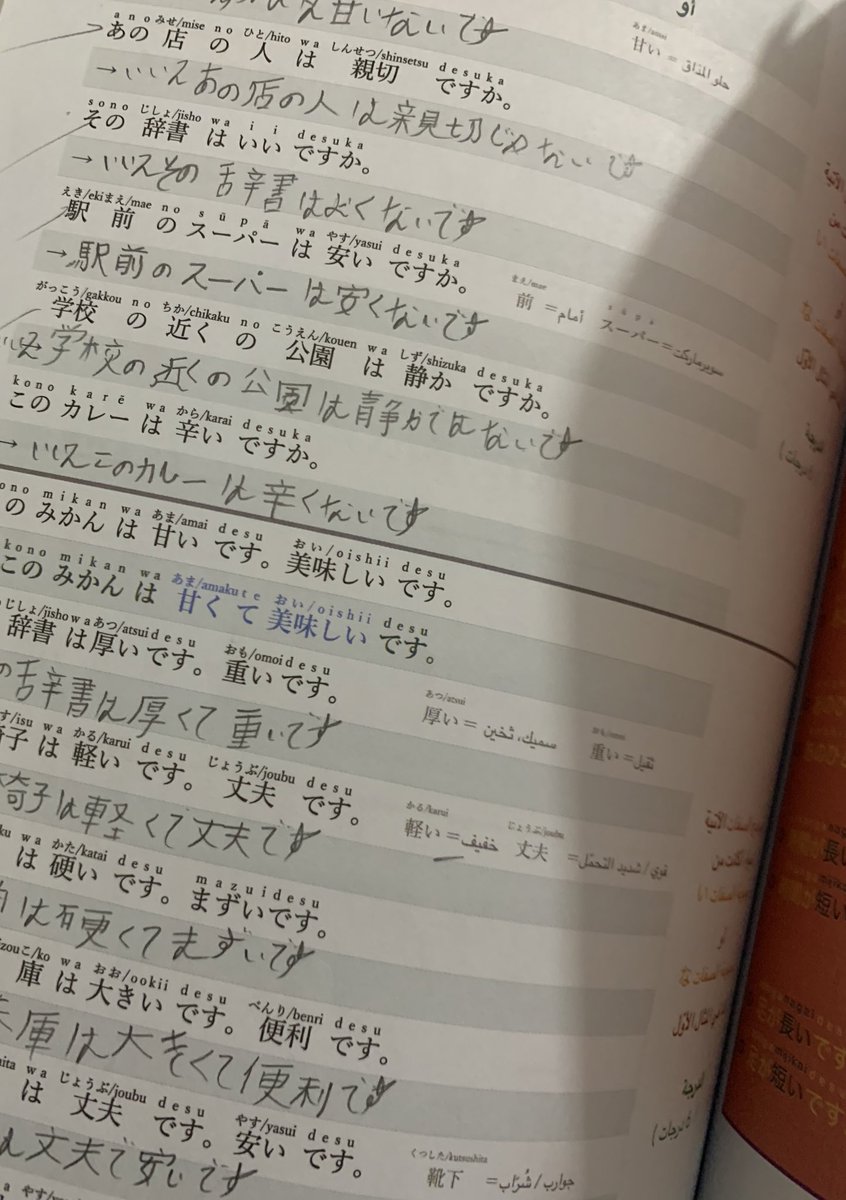 甘いないです
أو
あま/amai
甘い = حلو المذاق
ano みせ/mise no ひと/hito wa しんせつ/shinsetsu desuka
あの 店 の 人 は 親切 ですか。
→いいえあの店の人は親切じゃないです
sono じしょ/jisho wa ii desuka
その 辞書 は いい ですか。
→いいえその辞書はよくないです
えき/eki まえ/mae no sūpā wa やす/yasui desuka
駅 前 の スーパー は 安い ですか。
まえ/mae sūpā
前 = أمام スーパー = سوبرماركت
→駅前のスーパーは安くないです
がっこう/gakkou no ちか/chikaku no こうえん/kouen wa しず/shizuka desuka
学校 の 近く の 公園 は 静か ですか。
学校の近くの公園は静かではないです
kono karē wa から/karai desuka
この カレー は 辛い ですか。
→いいえこのカレーは辛くないです
ono mikan wa あま/amai desu おい/oishii desu
の みかん は 甘い です。 美味しい です。
kono mikan wa あま/amakute おい/oishii desu
この みかん は 甘くて 美味しい です。
じしょ/jisho wa あつ/atsui desu おも/omoi desu
辞書 は 厚い です。 重い です。
あつ/atsui おも/omoi
厚い = سميك، ثخين 重い = ثقيل
の辞書は厚くて重いです
す/isu wa かる/karui desu じょうぶ/joubu desu
椅子 は 軽い です。 丈夫 です。
かる/karui じょうぶ/joubu
軽い = خفيف 丈夫 = قوي / شديد التحمّل
椅子は軽くて丈夫です
ku wa かた/katai desu mazuidesu
は 硬い です。 まずいです。
は硬くてまずいです
zou こ/ko wa おお/ookii desu べんり/benri desu
庫 は 大きい です。 便利 です。
庫は大きくて便利です
hita wa じょうぶ/joubu desu やす/yasui desu
は 丈夫 です。 安い です。
くつした/kutsushita
靴下 = جوارب / شُرّاب
は丈夫で安いです
長い
短い
nagai desu
長いです
mijikai desu
短いです